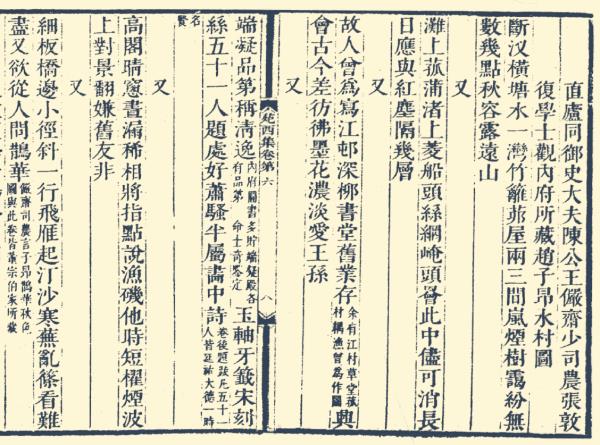 直廬同御史大夫陳公王儼齋少司農張敦
復學士觀内府所藏趙子昂水村圖
斷汊橫塘水一灣竹籬茆屋兩三間嵐煙樹靄紛無
數幾點秋容露遠山
又
灘上菰蒲渚上菱船頭絲網崦頭罾此中儘可消長
日應與紅塵隔幾層
又
故人曾爲寫江邨深栁書堂舊業存余有江村草堂菰村耦漁曾爲作圖興
會古今差彷彿墨花濃淡愛王孫
又
苑西集卷第六
八
端凝品第稱淸逸内府圖書多貯端凝殿各有品第命士奇鑒定玉軸牙籤宋刻
絲五十一人題處好蕭騷半屬畫中詩卷後題跋凡五十一人皆延祐大德一時
名賢
又
高閣晴窻晝漏稀相將指點說漁磯他時短櫂煙波
上對景翻嫌舊友非
又
細板橋邊小徑斜一行飛雁起汀沙寒蕪亂篠看難
盡又欲從人問鵲華儼齋司農言子昂鵲華秋色圖與此卷皆董宗伯家所藏